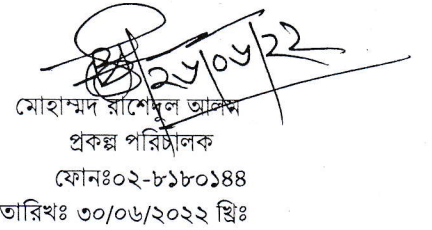 ২৬/০৬/২২
মোহাম্মদ রাশেদুল আলম
প্রকল্প পরিচালক
ফোনঃ০২-৮১৮০১৪৪
তারিখঃ ৩০/০৬/২০২২ খ্রিঃ